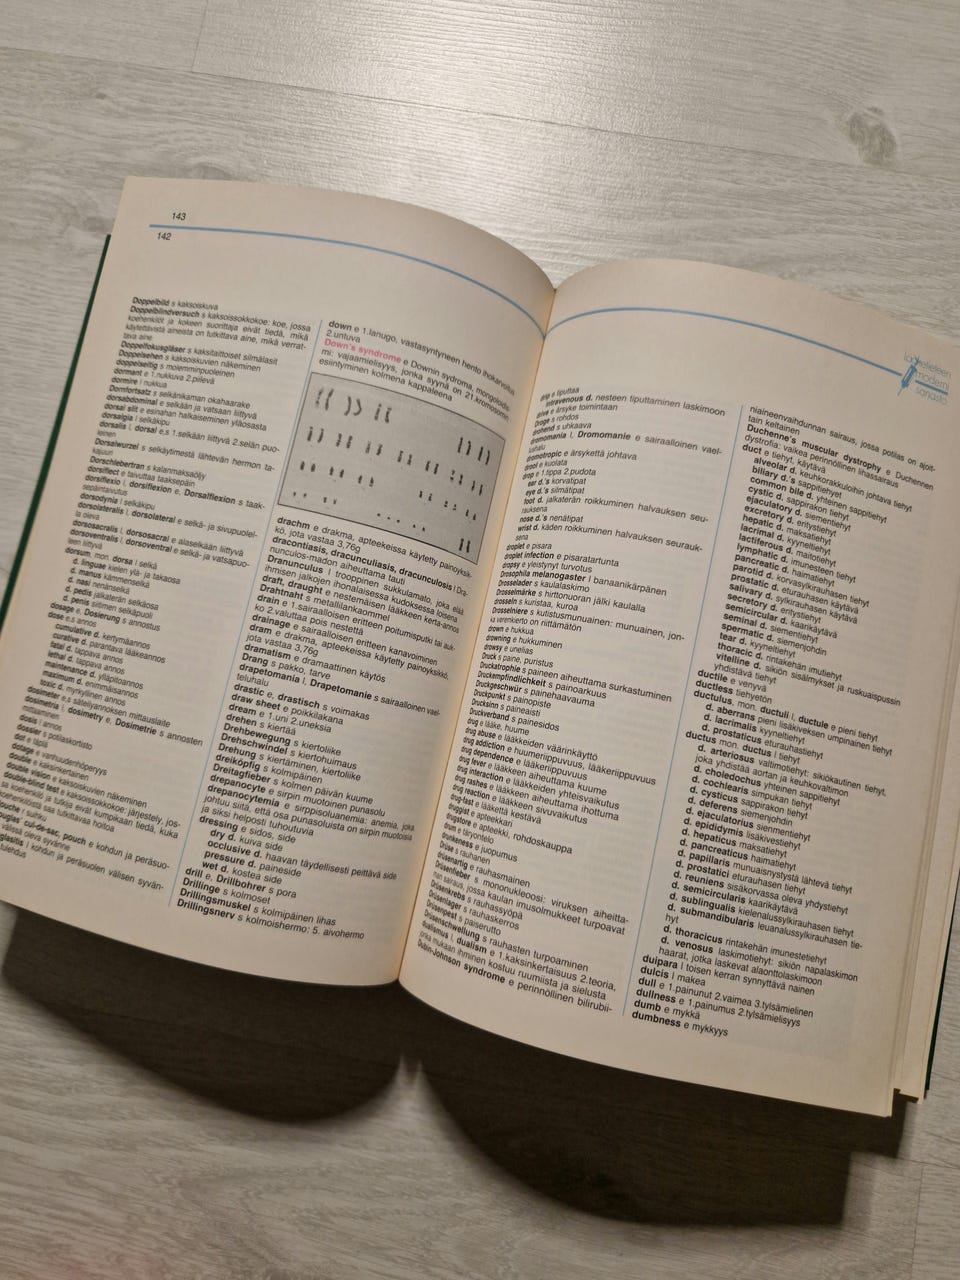 143
142
Doppelbild s kaksoiskuva
Doppelblindversuch s kaksoissokkokoe: koe, jossa
koehenkilöt ja kokeen suorittaja eivät tiedä, mikä
käytettävistä aineista on tutkittava aine, mikä verrat-
tava aine
Doppelfokusgläser s kaksitaittoiset silmälasit
Doppelsehen s kaksoiskuvien näkeminen
doppelseitig s molemminpuoleinen
dormant e 1.nukkuva 2.piilevä
dormire l nukkua
Dornfortsatz s selkänikaman okahaarake
dorsabdominal e selkään ja vatsaan liittyvä
dorsal slit e esinahan halkaiseminen yläosasta
dorsalgia l selkäkipu
dorsalis l, dorsal e,s 1.selkään liittyvä 2.selän puo-
leinen
Dorsalwurzel s selkäytimestä lähtevän hermon ta-
kajuuri
Dorschlebertran s kalanmaksaöljy
dorsiflect e taivuttaa taaksepäin
dorsiflexio l, dorsiflexion e, Dorsalflexion s taak-
sepäintaivutus
dorsodynia l selkäkipu
dorsolateralis l, dorsolateral e selkä- ja sivupuolel-
la oleva
dorsosacralis l, dorsosacral e alaselkään liittyvä
dorsoventralis l, dorsoventral e selkä- ja vatsapuo-
leen liittyvä
dorsum, mon. dorsa l selkä
d. linguae kielen ylä- ja takaosa
d. manus kämmenselkä
d. nasi nenänselkä
d. pedis jalkaterän selkäosa
d. penis siitimen selkäpuoli
dosage e, Dosierung s annostus
dose e,s annos
cumulative d. kertymäannos
curative d. parantava lääkeannos
fatal d. tappava annos
lethal d. tappava annos
maintenance d. ylläpitoannos
maximum d. enimmäisannos
toxic d. myrkyllinen annos
dosimeter e,s säteilyannoksen mittauslaite
dosimetria l, dosimetry e, Dosimetrie s annosten
mittaaminen
dosis l annos
dossier s potilaskortisto
dot e täplä
dotage e vanhuudenhöperyys
double e kaksinkertainen
double vision e kaksoiskuvien näkeminen
double-blind test e kaksoissokkokoe: järjestely, jos-
koehenkilö ja tutkija eivät kumpikaan tiedä, kuka
koehenkilöistä saa tutkittavaa hoitoa
douche l suihku
douglas' cul-de-sac, pouch e kohdun ja peräsuo-
välissä oleva syvänne
l kohdun ja peräsuolen välisen syvän-
tulehdus
down e 1.lanugo, vastasyntyneen hento ihokarvoitus
2.untuva
Down's syndrome e Downin sydroma, mongoloidis-
mi: vajaamielisyys, jonka syynä on 21.kromosomin
esiintyminen kolmena kappaleena
drachm e drakma, apteekeissa käytetty painoyksik-
kö, jota vastaa 3,76g
dracontiasis, dracunculiasis, dracunculosis l Dra-
nunculos-madon aiheuttama tauti
Dranunculus l trooppinen sukkulamato, joka elää
ihmisen jalkojen ihonalaisessa kudoksessa loisena
draft, draught e nestemäisen lääkkeen kerta-annos
Drahtnaht s metallilankaommel
drain e 1.sairaalloisen eritteen poitumisputki tai auk-
ko 2.valuttaa pois nestettä
drainage e sairaalloisen eritteen kanavoiminen
dram e drakma, apteekeissa käytetty painoyksikkö,
jota vastaa 3,76g
dramatism e dramaattinen käytös
Drang s pakko, tarve
drapetomania l, Drapetomanie s sairaalloinen vael-
teluhalu
drastic e, drastisch s voimakas
draw sheet e poikkilakana
dream e 1.uni 2.uneksia
Drehbewegung s kiertoliike
drehen s kiertää
Drehschwindel s kiertohuimaus
Drehung s kiertäminen, kiertoliike
dreiköpfig s kolmipäinen
Dreitagfieber s kolmen päivän kuume
drepanocyte e sirpin muotoinen punasolu
drepanocytemia e sirppisoluanemia: anemia, joka
johtuu siitä, että osa punasoluista on sirpin muotoisia
ja siksi helposti tuhoutuvia
dressing e sidos, side
dry d. kuiva side
occlusive d. haavan täydellisesti peittävä side
pressure d. paineside
wet d. kostea side
drill e, Drillbohrer s pora
Drillinge s kolmoset
Drillingsmuskel s kolmipäinen lihas
Drillingsnerv s kolmoishermo: 5. aivohermo
drip e tiputtaa
intravenous d. nesteen tiputtaminen laskimoon
drive e ärsyke toimintaan
Droge s rohdos
drohend s uhkaava
dromomania l, Dromomanie e sairaalloinen vael-
lushalu
dromotropic e ärsykettä johtava
drool e kuolata
drop e 1.tippa 2.pudota
ear d.'s korvatipat
eye d.'s silmätipat
foot d. jalkaterän roikkuminen halvauksen seu-
rauksena
nose d.'s nenätipat
wrist d. käden roikkuminen halvauksen seurauk-
sena
droplet e pisara
droplet infection e pisaratartunta
dropsy e yleistynyt turvotus
Drosophila melanogaster l banaanikärpänen
Drosselader s kaulalaskimo
Drosselmärke s hirttonuoran jälki kaulalla
drosseln s kuristaa, kuroa
Drosselniere s kutistusmunuainen: munuainen, jon-
ka verenkierto on riittämätön
drown e hukkua
drowning e hukkuminen
drowsy e unelias
Druck s paine, puristus
Druckatrophie s paineen aiheuttama surkastuminen
Druckempfindlichkeit s painoarkuus
Druckgeschwür s painehaavauma
Druckpunkt s painopiste
Drucksinn s paineaisti
Druckverband s painesidos
drug e lääke, huume
drug abuse e lääkkeiden väärinkäyttö
drug addiction e huumeriippuvuus, lääkeriippuvuus
drug dependence e lääkeriippuvuus
drug fever e lääkkeen aiheuttama kuume
drug interaction e lääkkeiden yhteisvaikutus
drug rashes e lääkkeen aiheuttama ihottuma
drug reaction e lääkkeen sivuvaikutus
drug-fast e lääkettä kestävä
druggist e apteekkari
drugstore e apteekki, rohdoskauppa
drum e täryontelo
drunkeness e juopumus
Drüse s rauhanen
drüsenartig e rauhasmainen
Drüsenfieber s mononukleoosi: viruksen aiheutta-
man sairaus, jossa kaulan imusolmukkeet turpoavat
Drüsenkrebs s rauhassyöpä
Drüsenlager s rauhaskerros
Drüsenpest s paiserutto
Drüsenschwellung s rauhasten turpoaminen
dualismus l, dualism e 1.kaksinkertaisuus 2.teoria,
jonka mukaan ihminen kostuu ruumiista ja sielusta
Dubin-Johnson syndrome e perinnöllinen bilirubii-
lääketieteen
moderni
sanasto
niaineenvaihdunnan sairaus, jossa potilas on ajoit-
tain keltainen
Duchenne's muscular dystrophy e Duchennen
dystrofia: vaikea perinnöllinen lihassairaus
duct e tiehyt, käytävä
alveolar d. keuhkorakkuloihin johtava tiehyt
biliary d.'s sappitiehyet
common bile d. yhteinen sappitiehyt
cystic d. sappirakon tiehyt
ejaculatory d. siementiehyt
excretory d. eritystiehyt
hepatic d. maksatiehyt
lacrimal d. kyyneltiehyt
lactiferous d. maitotiehyt
lymphatic d. imunesteen tiehyt
pancreatic d. haimatiehyt
parotid d. korvasylkirauhasen tiehyt
prostatic d. eturauhasen tiehyt
salivary d. sylkirauhasen käytävä
secretory d. eritystiehyt
semicircular d. kaarikäytävä
seminal d. siementiehyt
spermatic d. siemenjohdin
tear d. kyyneltiehyt
thoracic d. rintakehän imutiehyt
vitelline d. sikiön sisälmykset ja ruskuaispussin
yhdistävä tiehyt
ductile e venyvä
ductless tiehyetön
ductulus, mon. ductuli l, ductule e pieni tiehyt
d. aberrans pieni lisäkiveksen umpinainen tiehyt
d. lacrimalis kyyneltiehyt
d. prostaticus eturauhastiehyt
ductus mon. ductus l tiehyt
d. arteriosus valtimotiehyt: sikiökautinen tiehyt,
joka yhdistää aortan ja keuhkovaltimon
d. choledochus yhteinen sappitiehyt
d. cochlearis simpukan tiehyt
d. cysticus sappirakon tiehyt
d. deferens siemenjohdin
d. ejaculatorius sienmentiehyt
d. epididymis lisäkivestiehyt
d. hepaticus maksatiehyt
d. pancreaticus haimatiehyt
d. papillaris munuaisnystystä lähtevä tiehyt
d. prostatici eturauhasen tiehyt
d. reuniens sisäkorvassa oleva yhdystiehyt
d. semicircularis kaarikäytävä
d. sublingualis kielenalussylkirauhasen tiehyt
d. submandibularis leuanalussylkirauhasen tie-
hyt
d. thoracicus rintakehän imunestetiehyt
d. venosus laskimotiehyt: sikiön napalaskimon
haarat, jotka laskevat alaonttolaskimoon
duipara l toisen kerran synnyttävä nainen
dulcis l makea
dull e 1.painunut 2.vaimea 3.tylsämielinen
dullness e 1.painumus 2.tylsämielisyys
dumb e mykkä
dumbness e mykkyys